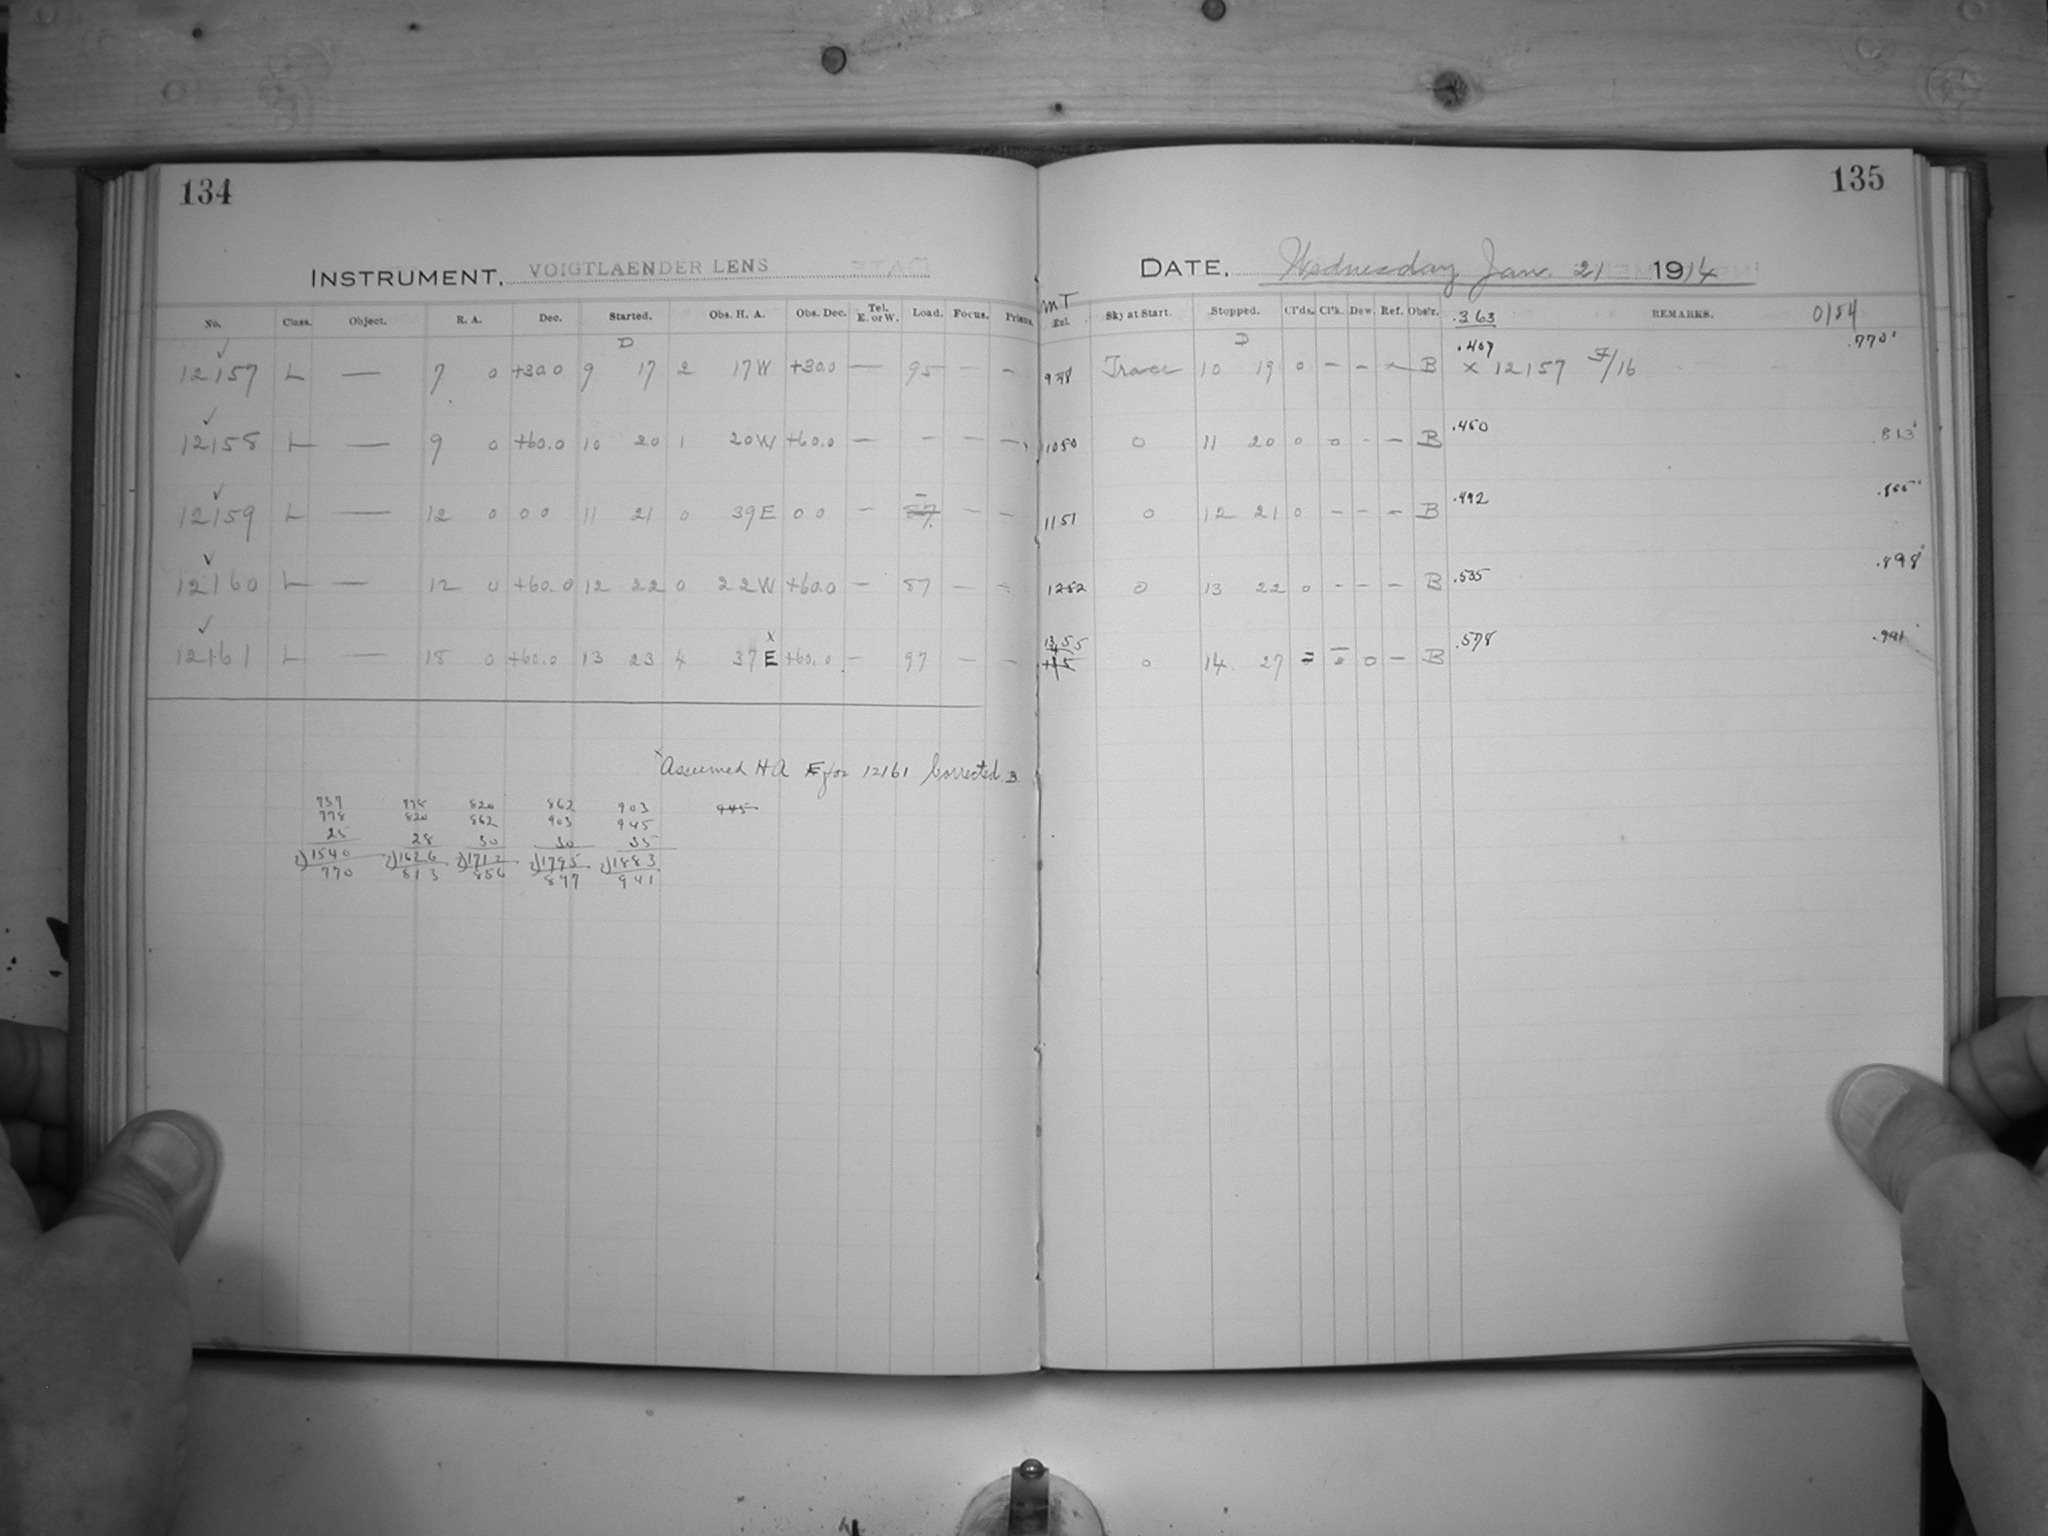 134
INSTRUMENT. VOIGTLAENDER LENS
No. Class. Object. R. A. Dec. Started. Obs. H. A. Obs. Dec. Tel. E. or W. Load. Focus. Prism.
D
12157 L — 7 0 +30.0 9 17 2 17W +30.0 — 95 — —
12158 L — 9 0 +60.0 10 20 1 20W +60.0 — — — —
12159 L — 12 0 0 0 11 21 0 39E 0 0 — 87 — —
12160 L — 12 0 +60.0 12 22 0 22W +60.0 — 87 — —
x
12161 L — 18 0 +60.0 13 23 4 37E +60.0 — 97 — —
x Assumed HA E for 12161 Corrected B
757 778 820 862 903 945
778 820 862 903 945
25 28 30 30 35
2)1540 2)1626 2)1712 2)1795 2)1883
770 813 856 897 941
135
DATE. Wednesday Jan. 21 1914
MT
Exl. Sky at Start. Stopped. Cl'ds. Cl'k. Dew. Ref. Obs'r. .363 REMARKS. 0154
D .407 .770
948 Trace 10 19 0 — — — B x 12157 F/16
1050 0 11 20 0 0 — — B .450 .813
1151 0 12 21 0 — — — B .492
1252 0 13 22 0 — — — B .535 .898
1355
0 14 27 0 — B .578 .941